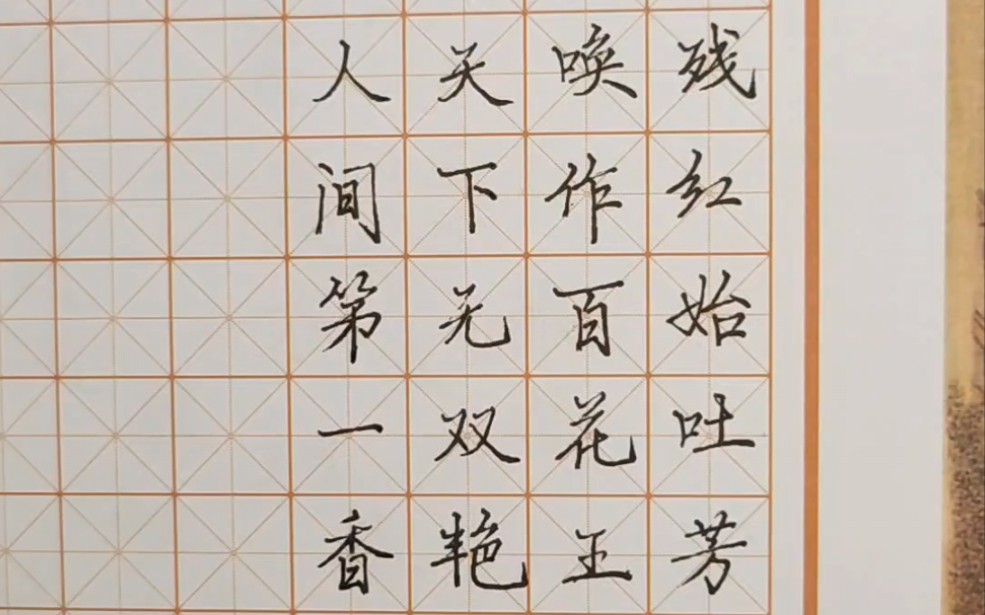 残红始吐芳
唤作百花王
天下无双艳
人间第一香